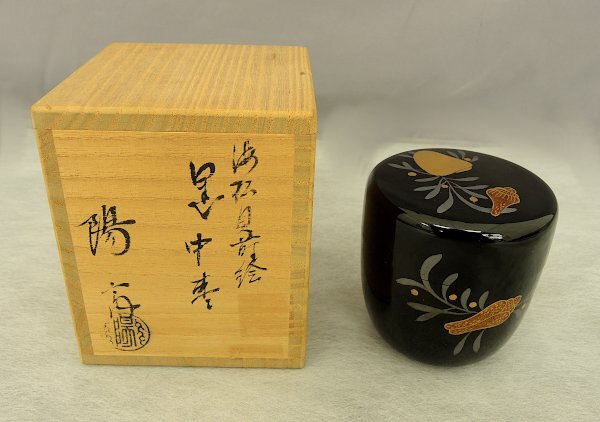 海松貝蒔絵
黒中棗
陽